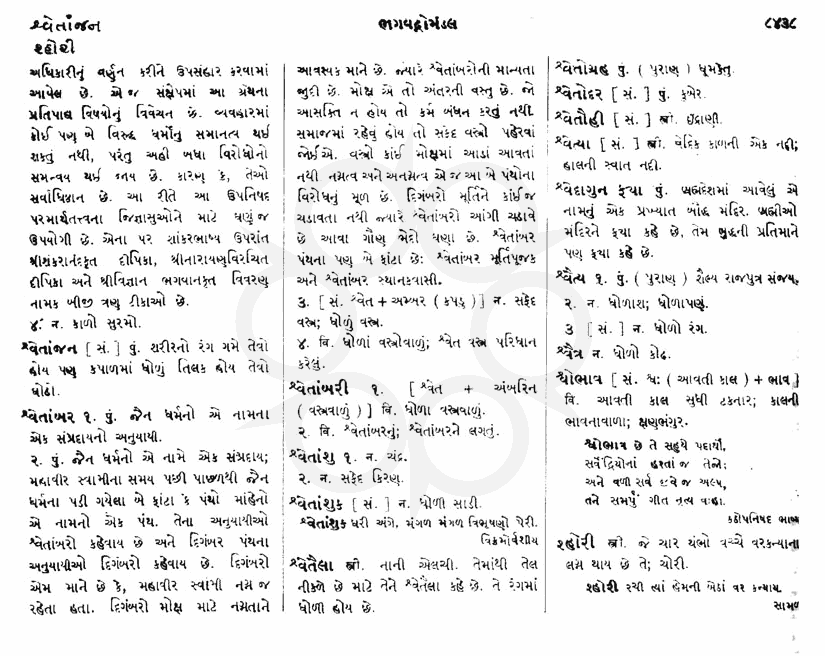 શ્વેતાંજન
ભગવદ્ગોમંડલ
૮૪૩૮
શ્હોરી
અધિકારીનું વર્ણન કરીને ઉપસંહાર કરવામાં
આપેલ છે. એ જ સંક્ષેપમાં આ ગ્રંથના
પ્રતિપાદ્ય વિષયોનું વિવેચન છે. વ્યવહારમાં
કોઈ પણ બે વિરુદ્ધ ધર્મોનું સમાનત્વ થઈ
શકતું નથી, પરંતુ અહીં બધા વિરોધોનો
સમન્વય થઈ જાય છે. કારણ કે, તેઓ
સર્વાધિષ્ઠાન છે. આ રીતે આ ઉપનિષદ
પરમાર્થતત્ત્વના જિજ્ઞાસુઓને માટે ઘણું જ
ઉપયોગી છે. એના પર શાંકરભાષ્ય ઉપરાંત
શ્રીશંકરાનંદકૃત દીપિકા, શ્રીનારાયણવિરચિત
દીપિકા અને શ્રીવિજ્ઞાન ભગવાનકૃત વિવરણ
નામક બીજી ત્રણ ટીકાઓ છે.
૪. ન. કાળો સુરમો.
શ્વેતાંજન [ સં. ] પું. શરીરનો રંગ ગમે તેવો
હોય પણ કપાળમાં ધોળું તિલક હોય તેવો
ઘોડો.
શ્વેતાંબર ૧. પું. જૈન ધર્મનો એ નામના
એક સંપ્રદાયનો અનુયાયી.
૨. પું. જૈન ધર્મનો એ નામે એક સંપ્રદાય;
મહાવીર સ્વામીના સમય પછી પાછળથી જૈન
ધર્મના પડી ગયેલા બે ફાંટા કે પંથો માંહેનો
એ નામનો એક પંથ. તેના અનુયાયીઓ
શ્વેતાંબરો કહેવાય છે અને દિગંબર પંથના
અનુયાયીઓ દિગંબરો કહેવાય છે. દિગંબરો
એમ માને છે કે, મહાવીર સ્વામી નગ્ન જ
રહેતા હતા. દિગંબરો મોક્ષ માટે નગ્નતાને
આવશ્યક માને છે. જ્યારે શ્વેતાંબરોની માન્યતા
જુદી છે. મોક્ષ એ તો અંતરની વસ્તુ છે. જો
આસક્તિ ન હોય તો કર્મ બંધન કરતું નથી.
સમાજમાં રહેવું હોય તો સફેદ વસ્ત્રો પહેરવાં
જોઈએ. વસ્ત્રો કાંઈ મોક્ષમાં આડાં આવતાં
નથી નગ્નત્વ અને અનગ્નત્વ એ જ આ બે પંથોના
વિરોધનું મૂળ છે. દિગંબરો મૂર્તિને કાંઈ જ
ચડાવતા નથી જ્યારે શ્વેતાંબરો આંગી ચઢાવે
છે આવા ગૌણ ભેદો ઘણા છે. શ્વેતાંબર
પંથના પણ બે ફાંટા છેઃ શ્વેતાંબર મૂર્તિપૂજક
અને શ્વેતાંબર સ્થાનકવાસી.
૩. [ સં. શ્વેત + અમ્બર ( કપડું ) ] ન. સફેદ
વસ્ત્ર; ધોળું વસ્ત્ર.
૪. વિ. ધોળાં વસ્ત્રોવાળું; શ્વેત વસ્ત્ર પરિધાન
કરેલું.
શ્વેતાંબરી ૧. [ શ્વેત + અંબરિન
( વસ્ત્રવાળું ) ] વિ. ધોળા વસ્ત્રવાળું.
૨. વિ. શ્વેતાંબરનું; શ્વેતાંબરને લગતું.
શ્વેતાંશુ ૧. ન. ચંદ્ર.
૨. ન. સફેદ કિરણ.
શ્વેતાંશુક [ સં. ] ન. ધોળી સાડી.
શ્વેતાંશુક ધરી અંગે, મંગળ મંગળ ત્રિભૂષણો પેરી.
વિક્રમોર્વશીય
શ્વેતૈલા સ્ત્રી. નાની એલચી. તેમાંથી તેલ
નીકળે છે માટે તેને શ્વેતૈલા કહે છે. તે રંગમાં
ધોળી હોય છે.
શ્વેતોગ્રહ પું. ( પુરાણ ) ધૂમકેતુ.
શ્વેતોદર [ સં. ] પું. કુબેર.
શ્વેતૌહી [ સં. ] સ્ત્રી. ઇંદ્રાણી.
શ્વેત્યા [ સં. ] સ્ત્રી. વૈદિક કાળની એક નદી;
હાલની સ્વાત નદી.
શ્વેદાગુન ક્યા પું. બ્રહ્મદેશમાં આવેલું એ
નામનું એક પ્રખ્યાત બૌદ્ધ મંદિર. બ્રહ્મીઓ
મંદિરને ક્યા કહે છે, તેમ બુદ્ધની પ્રતિમાને
પણ ક્યા કહે છે.
શ્વૈત્ય ૧. પું. ( પુરાણ ) શૈબ્ય રાજપુત્ર સંજય.
૨. ન. ધોળાશ; ધોળાપણું.
૩ [ સં. ] ન. ધોળો રંગ.
શ્વૈત્ર ન. ધોળો કોઢ.
શ્વોભાવ [ સં. શ્વઃ ( આવતી કાલ ) + ભાવ ]
વિ. આવતી કાલ સુધી ટકનાર; કાલની
ભાવનાવાળા; ક્ષણભંગુર.
શ્વોભાવ છે તે સહુયે પદાર્થો,
સર્વેંદ્રિયોનાં હરતાં જ તેજો;
અને વળી સર્વ જીવે જ અલ્પ,
તને સમર્પું ગીત નૃત્ય વાહો.
કઠોપનિષદ ભાષ્ય
શ્હોરી સ્ત્રી. જે ચાર થંભો વચ્ચે વરકન્યાના
લગ્ન થાય છે તે; ચોરી.
શ્હોરી રચી ત્યાં હેમની બેઠાં વર કન્યાય.
સામળ